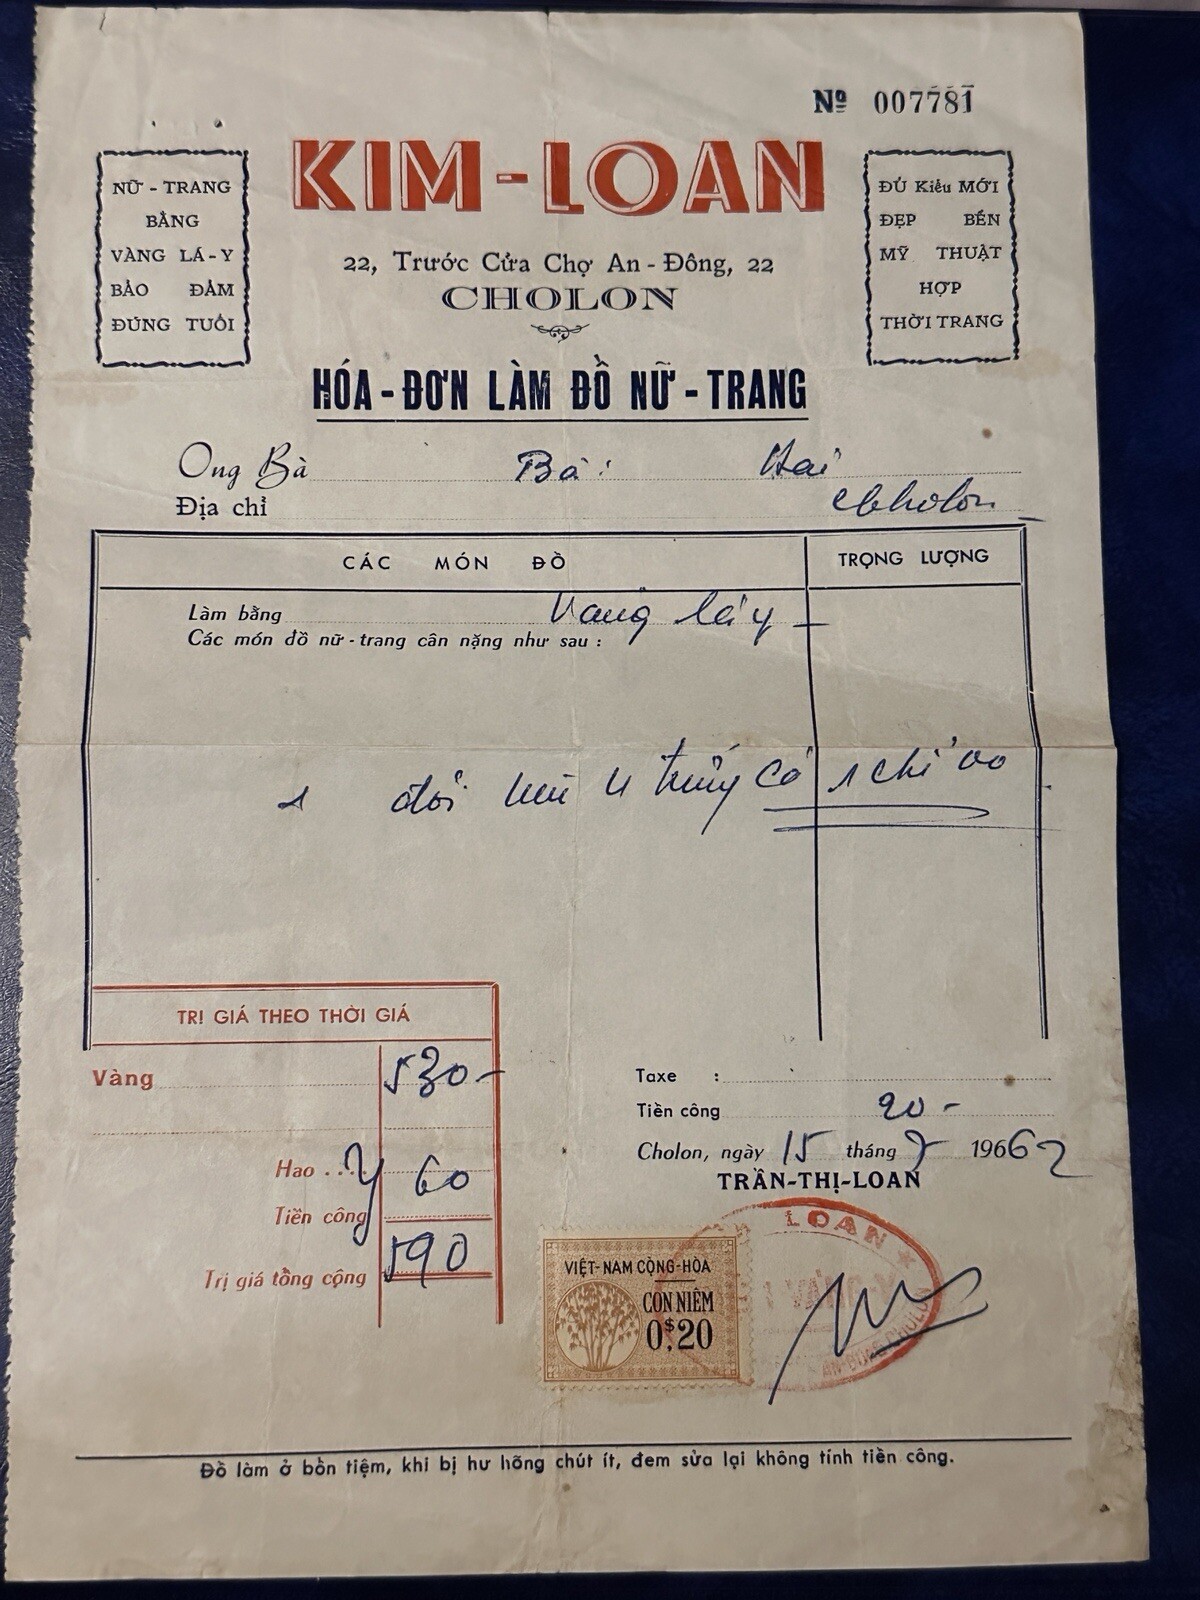 Nº 007781
KIM-LOAN
NỮ - TRANG
BẰNG
VÀNG LÁ-Y
BẢO ĐẢM
ĐÚNG TUỔI
ĐỦ Kiểu MỚI
ĐẸP BỀN
MỸ THUẬT
HỢP
THỜI TRANG
22, Trước Cửa Chợ An-Đông, 22
CHOLON
HÓA-ĐƠN LÀM ĐỒ NỮ-TRANG
Ong Bà Bà: Hai
Địa chỉ Cholon
CÁC MÓN ĐỒ TRỌNG LƯỢNG
Làm bằng Vang lá y
Các món đồ nữ-trang cân nặng như sau :
1 đôi 4 có 1 chỉ 00
TRỊ GIÁ THEO THỜI GIÁ
Vàng 530-
Hao 60
Tiền công
Trị giá tổng cộng 590
Taxe :
Tiền công 20-
Cholon, ngày 15 tháng 7 1966 62
TRẦN-THỊ-LOAN
LOAN
VIỆT-NAM CỘNG-HÒA
CON NIÊM
0$20
Đồ làm ở bổn tiệm, khi bị hư hỏng chút ít, đem sửa lại không tính tiền công.